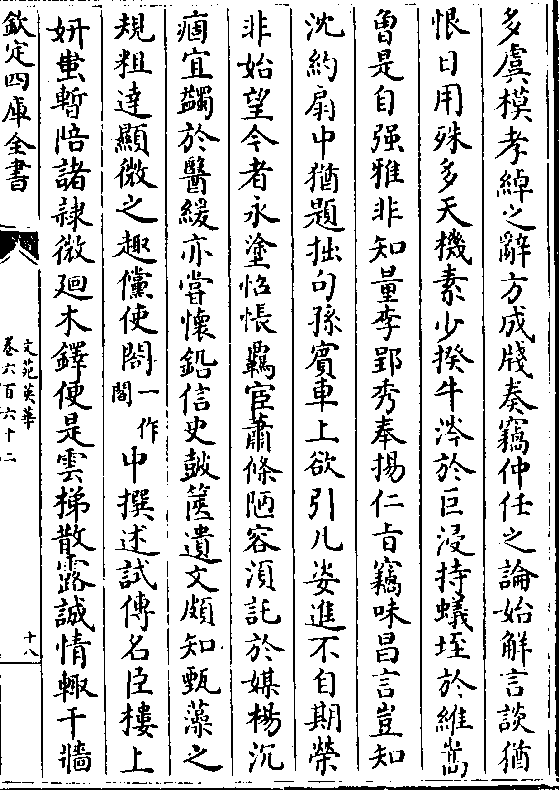 多虞模孝綽之辭方成牋奏竊仲任之論始解言談猶
恨日用殊多天機素少揆牛涔於巨浸持蟻垤於維嵩
曾是自强雅非知量李郢秀奉揚仁旨竊味昌言豈知
沈約扇中猶題拙句孫賓車上欲引凡姿進不自期榮
非始望今者永塗怊悵羈宦蕭條陋容須託於媒楊沉
痼宜蠲於醫緩亦嘗懷鉛信史鼓篋遺文頗知甄藻之
規粗達顯微之趣儻使閤一作閣中撰述試傳名臣樓上
妍蚩暫陪諸隷微廻木鐸便是雲梯散露誠情輙干牆
欽定四庫全書
文苑英華
卷六百六十二
十八